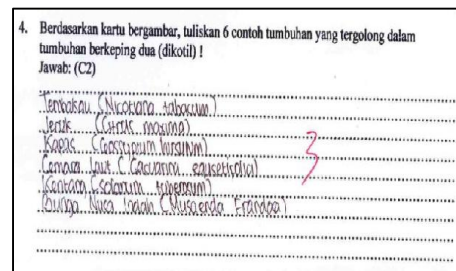 4. Berdasarkan kartu bergambar, tuliskan 6 contoh tumbuhan yang tergolong dalam
tumbuhan berkeping dua (dikotil) !
Jawab: (C2)
Tembakau (Nicotiana tabacum)
Jeruk (Citrus maxima)
Kapas (Gossypium hirsutum)
Cemara laut (Casuarina equisetifolia)
Kentang (Solanum tuberosum)
Bunga Nusa Indah (Musaenda Frandosa)
3